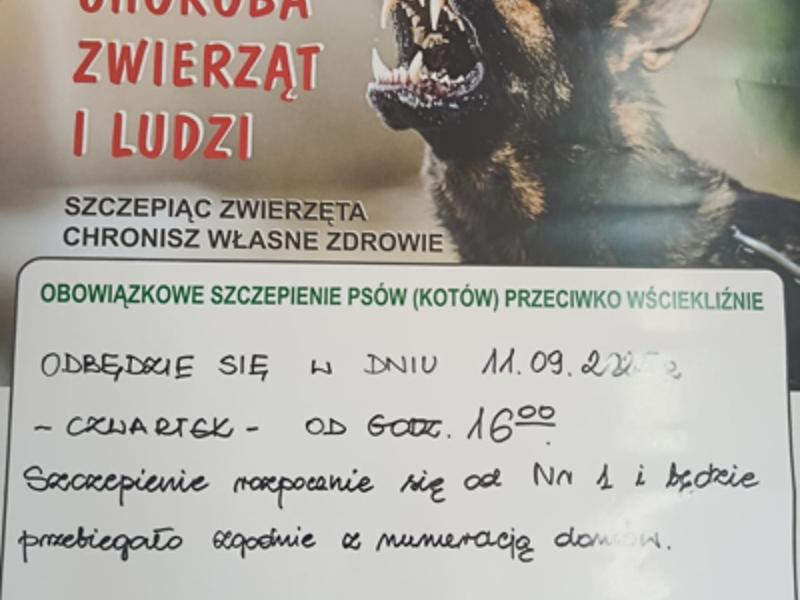 CHOROBA
ZWIERZĄT
I LUDZI
SZCZEPIĄC ZWIERZĘTA
CHRONISZ WŁASNE ZDROWIE
OBOWIĄZKOWE SZCZEPIENIE PSÓW (KOTÓW) PRZECIWKO WŚCIEKLIŹNIE
ODBĘDZIE SIĘ W DNIU 11.09.2025r
- CZWARTEK - OD GODZ. 16⁰⁰
Szczepienie rozpocznie się od Nr 1 i będzie
przebiegało zgodnie z numeracją domów.